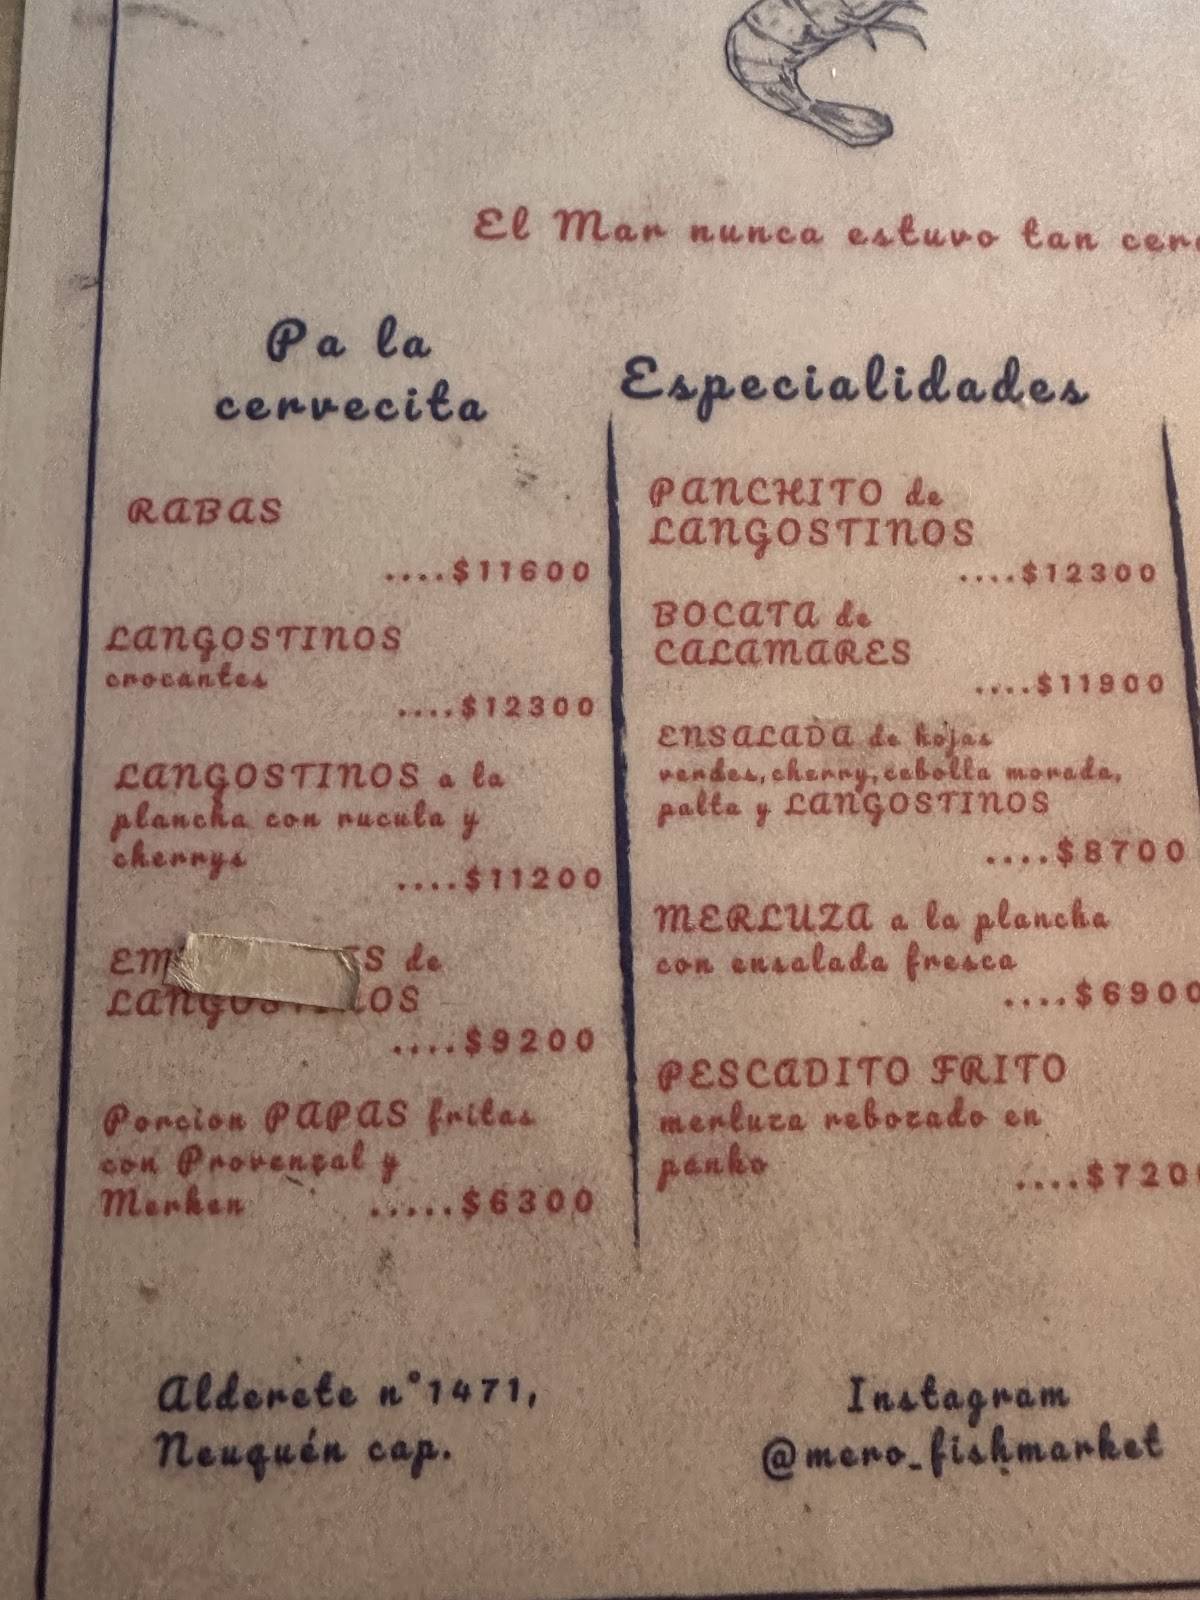 El Mar nunca estuvo tan
Pa la
cervecita
RABAS
....$11600
LANGOSTINOS
crocantes
....$12300
LANGOSTINOS a la
plancha con rucula y
cherrys
....$11200
de
LANGOSTINOS
....$9200
Porcion PAPAS fritas
con Provenzal y
Merken .....$6300
Especialidades
PANCHITO de
LANGOSTINOS
....$12300
BOCATA de
CALAMARES
....$11900
ENSALADA de hojas
verdes,cherry,cebolla morada,
palta y LANGOSTINOS
....$8700
MERLUZA a la plancha
con ensalada fresca
....$6900
PESCADITO FRITO
merluza rebozado en
panko
Alderete n°1471,
Neuquén cap.
Instagram
@mero_fishmarket